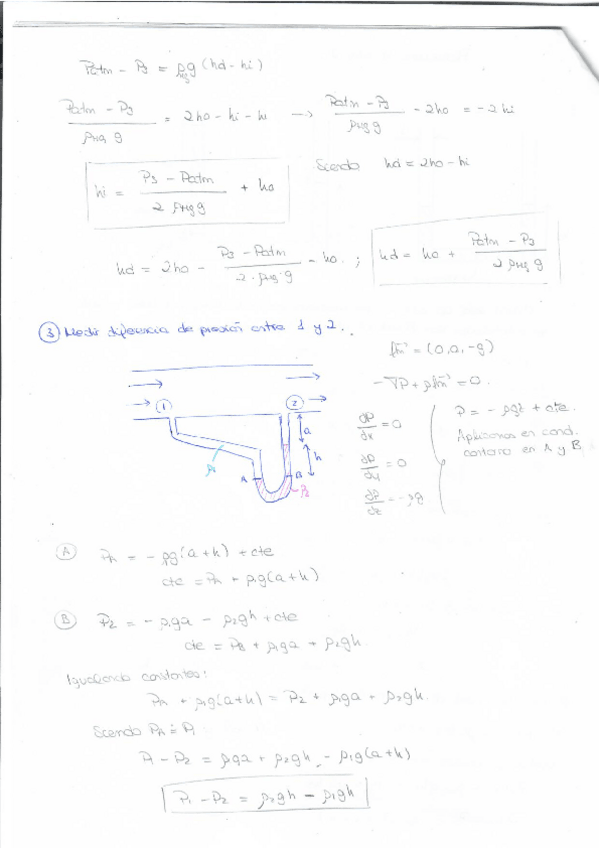 Patm - P3 = ρHg g (hd - hi)
(Patm - P3) / (ρHg g) = 2ho - hi - hi → (Patm - P3) / (ρHg g) - 2ho = -2hi
hi = (P3 - Patm) / (2 ρHg g) + ho
Siendo hd = 2ho - hi
hd = 2ho - (P3 - Patm) / (2 · ρHg · g) - ho. ; hd = ho + (Patm - P3) / (2 ρHg g)
③ Medir diferencia de presión entre 1 y 2.
fm = (0, 0, -g)
-∇P + ρfm = 0.
① ②
a
h
ρ1
A B
ρ2
dP/dx = 0
dP/dy = 0
dP/dz = -ρg
P = - ρgz + cte.
Aplicamos en cond.
contorno en A y B
Ⓐ PA = - ρg(a+h) + cte
cte = PA + ρ1g(a+h)
Ⓑ P2 = - ρ1ga - ρ2gh + cte
cte = PB + ρ1ga + ρ2gh
Igualando constantes:
PA + ρ1g(a+h) = P2 + ρ1ga + ρ2gh.
Siendo PA = P1
P1 - P2 = ρ1ga + ρ2gh - ρ1g(a+h)
P1 - P2 = ρ2gh - ρ1gh